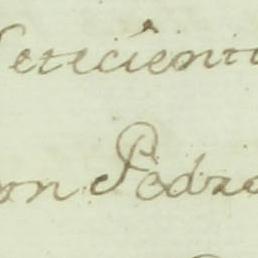 Setecient
on Pedro